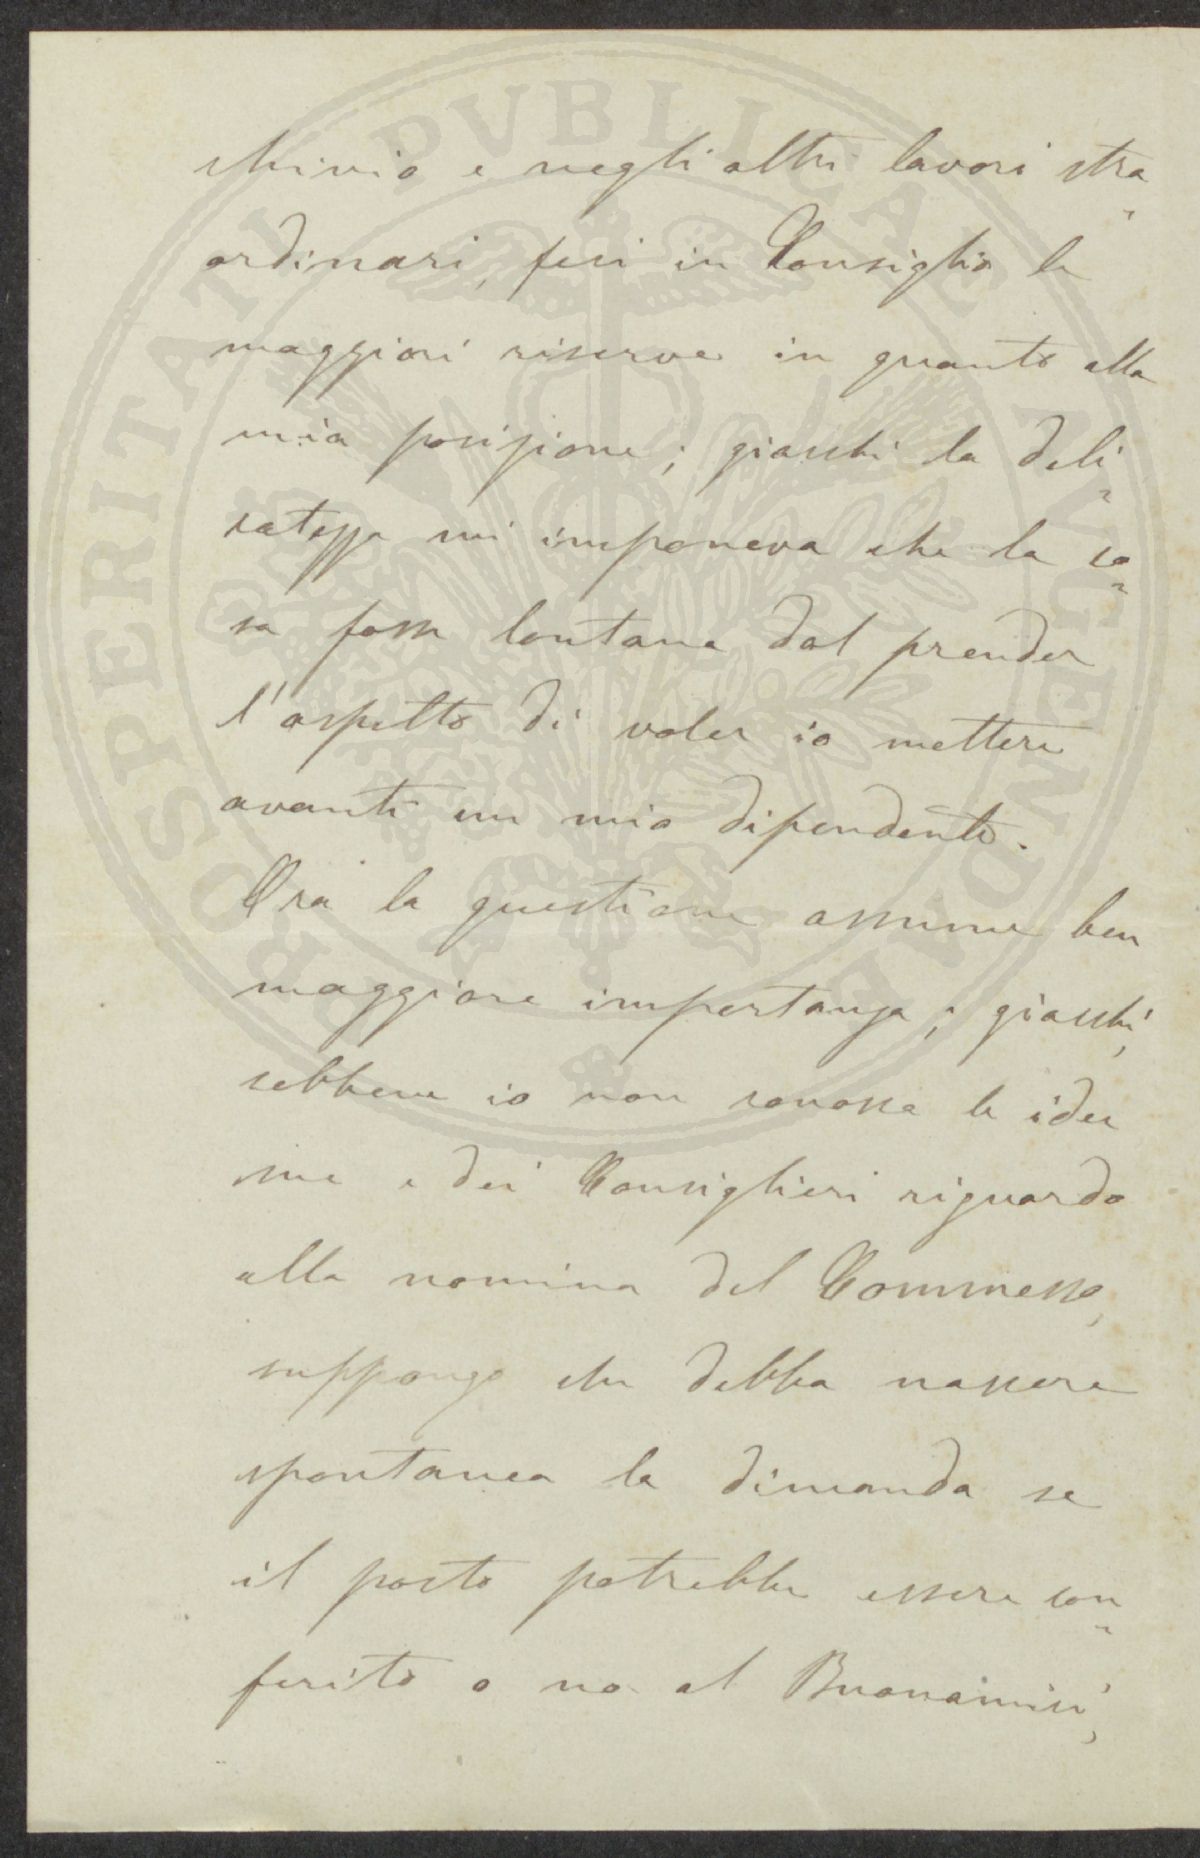 chivio e negli altri lavori stra-
ordinari, feci in Consiglio le
maggiori riserve in quanto alla
mia posizione; giacchè la deli-
catezza mi imponeva che la co-
sa fosse lontana dal prender
l'aspetto di voler io mettere
avanti un mio dipendente.
Ora la questione assume ben
maggiore importanza; giacchè,
sebbene io non conosca le idee
sue e dei Consiglieri riguardo
alla nomina del Commesso,
suppongo che debba nascere
spontanea la dimanda se
il posto potrebbe essere con-
ferito o no al Buonamici,
PROSPERITATI PVBLICAE AVGENDAE